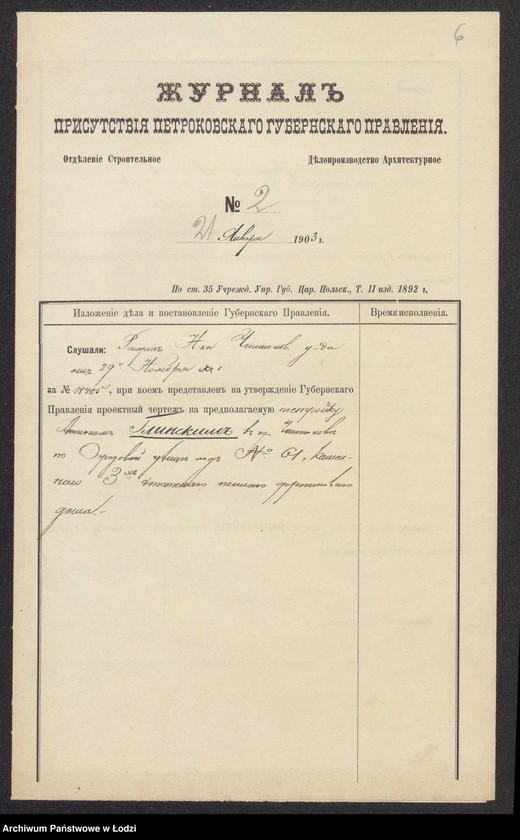 6
ЖУРНАЛЪ
ПРИСУТСТВІЯ ПЕТРОКОВСКАГО ГУБЕРНСКАГО ПРАВЛЕНІЯ.
Отдѣленіе Строительное
Дѣлопроизводство Архитектурное
№ 2
21 Января 1903 г.
По ст. 35 Учрежд. Упр. Губ. Цар. Польск., Т. II изд. 1892 г.
Изложеніе дѣла и постановленіе Губернскаго Правленія.
Время исполненія.
Слушали: Рапортъ Н-ка у-да
отъ 29 Ноября
за № , при коемъ представленъ на утвержденіе Губернскаго
Правленія проектный чертежъ на предполагаемую постройку
Антономъ Глинскимъ въ
по улицѣ подъ № 61, камен-
наго 3хъ этажнаго жилаго фронтоваго
дома.
Archiwum Państwowe w Łodzi